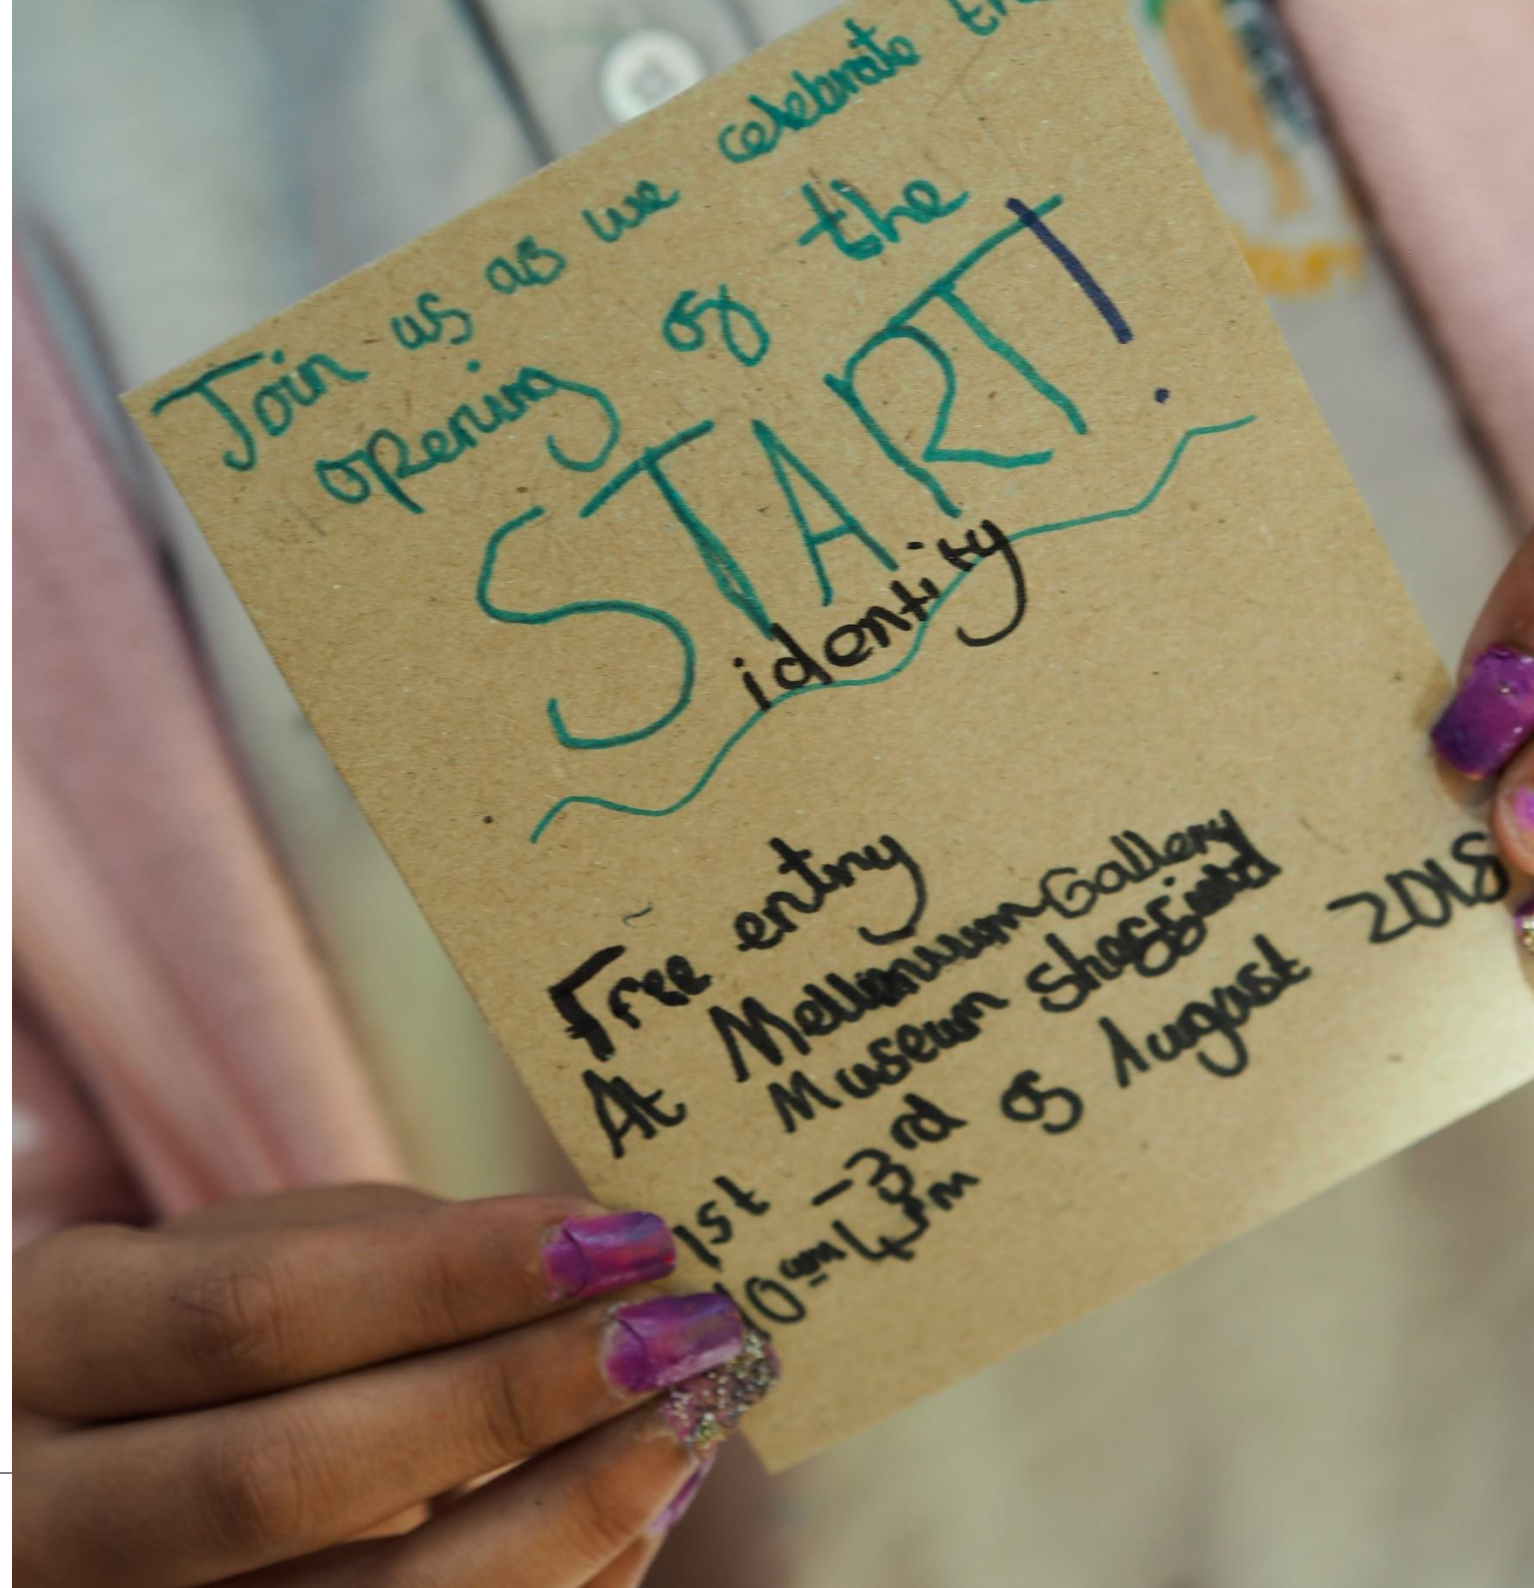 Join us as we celebrate the
opening of the
START!
identity
Free entry
At Mellenuum Gallery
Museum Sheffield
1st - 3rd of August 2018
10am 4pm